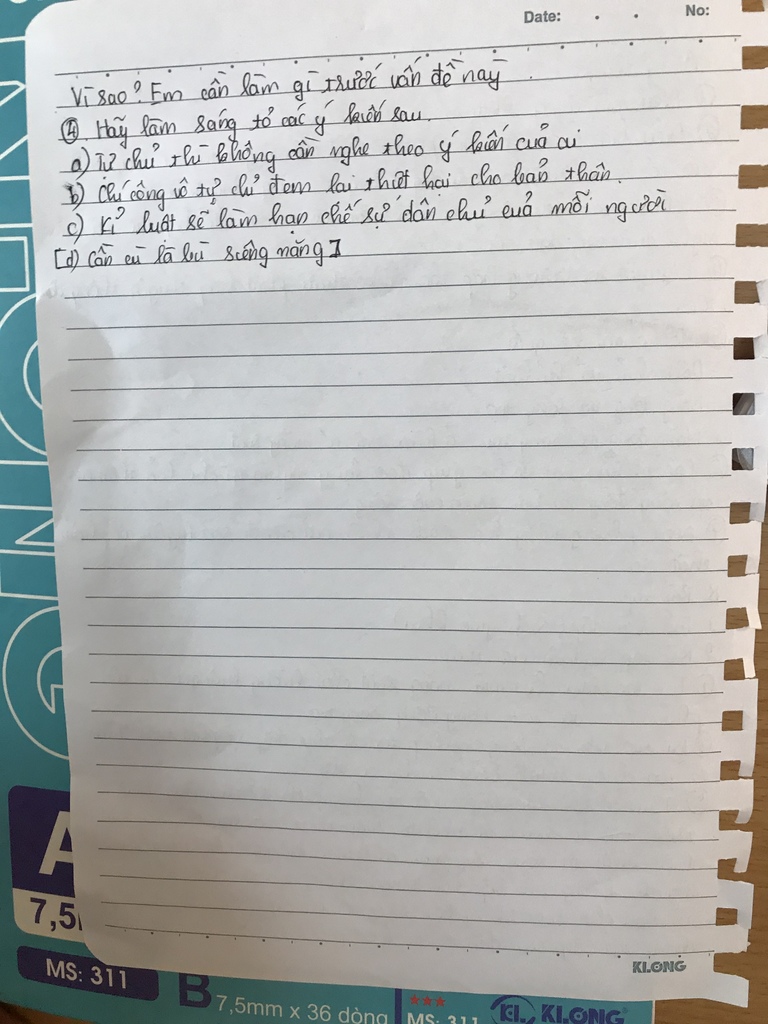 Date: . . No:
Vì sao? Em cần làm gì trước vấn đề này
④ Hãy làm sáng tỏ các ý kiến sau.
a) Tự chủ thì không cần nghe theo ý kiến của ai
b) Chí công vô tư chỉ đem lại thiệt hại cho bản thân.
c) Kỉ luật sẽ làm hạn chế sự dân chủ của mỗi người
[d) Cần cù là bù siêng năng]
KLONG
A
7,5
MS: 311
B 7,5mm x 36 dòng
MS: 311
KLONG